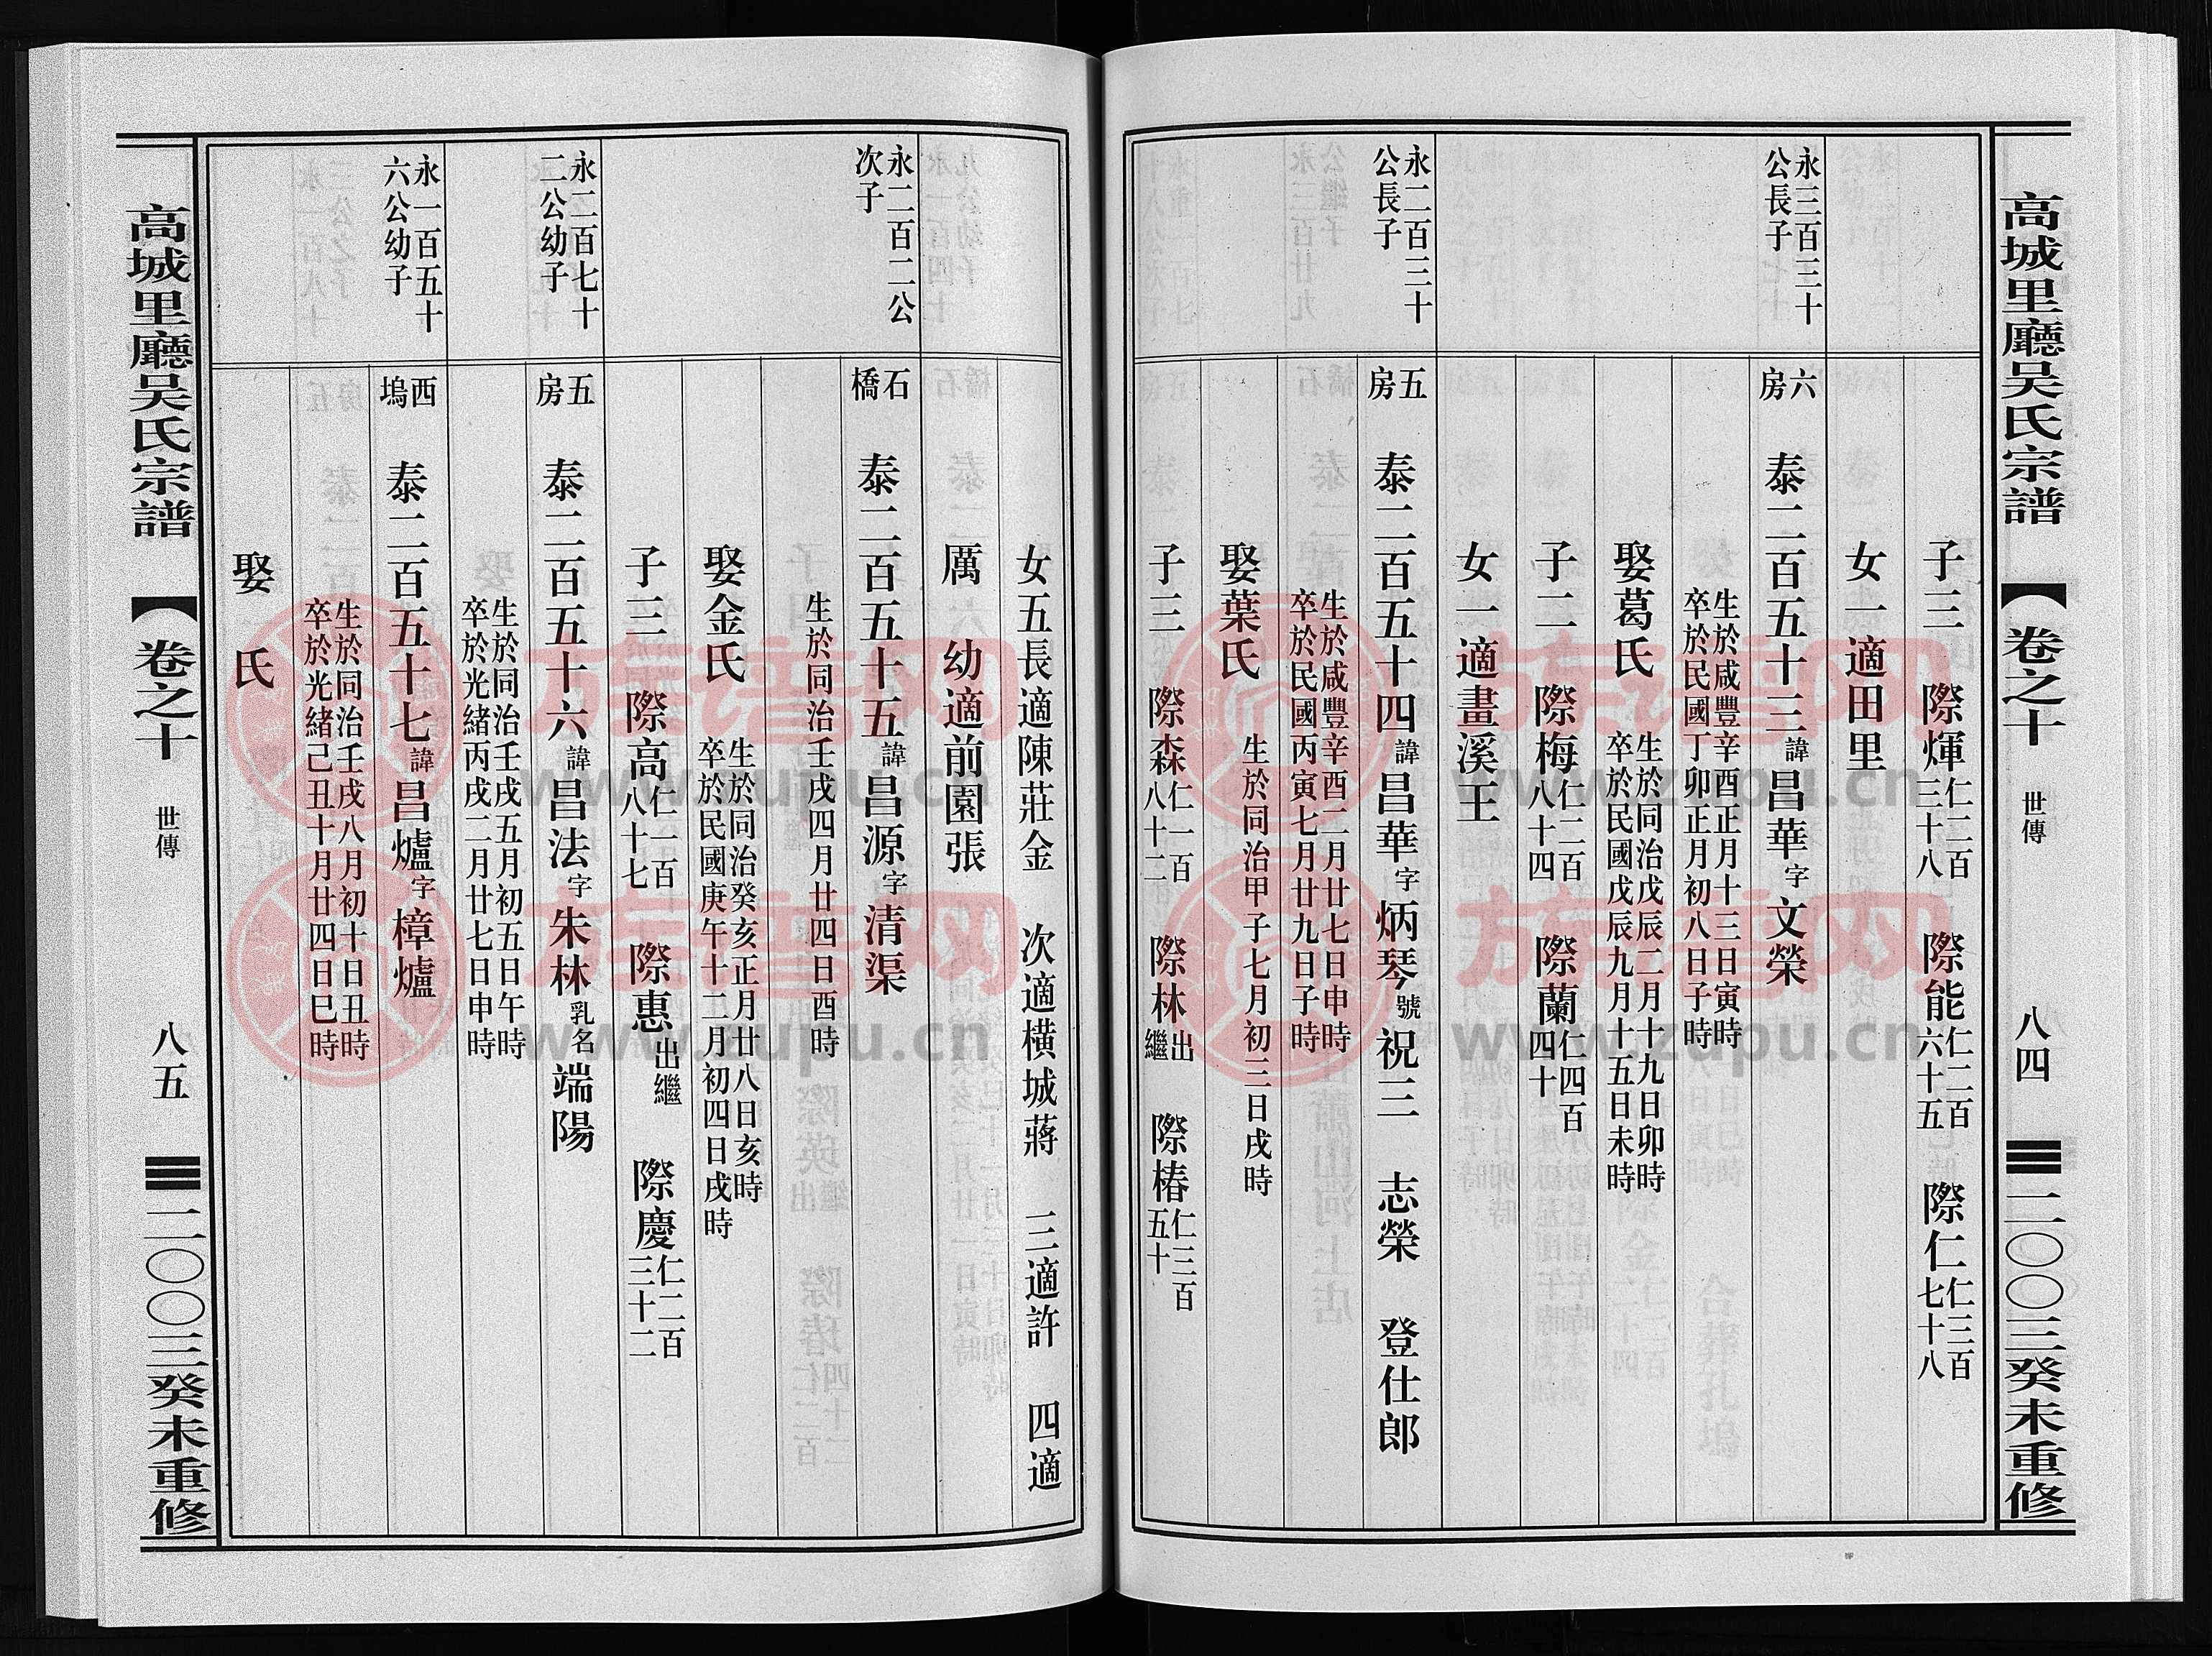 高城里廳吴氏宗譜
【卷之十
世傳
八四
二〇〇三癸未重修
子三 際煇仁二百三十八 際能仁二百六十五 際仁仁三百七十八
女一適田里
永三百三十
公長子
六房 泰二百五十三諱昌華字文榮
生於咸豐辛酉正月十三日寅時
卒於民國丁卯正月初八日子時
娶葛氏
生於同治戊辰二月十九日卯時
卒於民國戊辰九月十五日未時
子二 際梅仁二百八十四 際蘭仁四百四十
女一適畫溪王
永二百三十
公長子
五房 泰二百五十四諱昌華字炳琴號祝三 志榮 登仕郎
生於咸豐辛酉二月廿七日申時
卒於民國丙寅七月廿九日子時
娶葉氏
生於同治甲子七月初三日戌時
子三 際森仁一百八十二 際林出繼 際椿仁三百五十
女五長適陳莊金 次適橫城蔣 三適許 四適
厲 幼適前園張
永二百二公
次子
石橋 泰二百五十五諱昌源字清渠
生於同治壬戌四月廿四日酉時
娶金氏
生於同治癸亥正月廿八日亥時
卒於民國庚午十二月初四日戌時
子三 際高仁二百八十七 際惠出繼 際慶仁二百三十二
永二百七十
二公幼子
五房 泰二百五十六諱昌法字朱林乳名端陽
生於同治壬戌五月初五日午時
卒於光緒丙戌二月廿七日申時
永一百五十
六公幼子
西塢 泰二百五十七諱昌爐字樟爐
生於同治壬戌八月初十日丑時
卒於光緒己丑十月廿四日巳時
娶 氏
高城里廳吴氏宗譜
【卷之十
世傳
八五
二〇〇三癸未重修
族谱网
www.zupu.cn
族谱网
www.zupu.cn
族谱网
www.zupu.cn
族谱网
www.zupu.cn